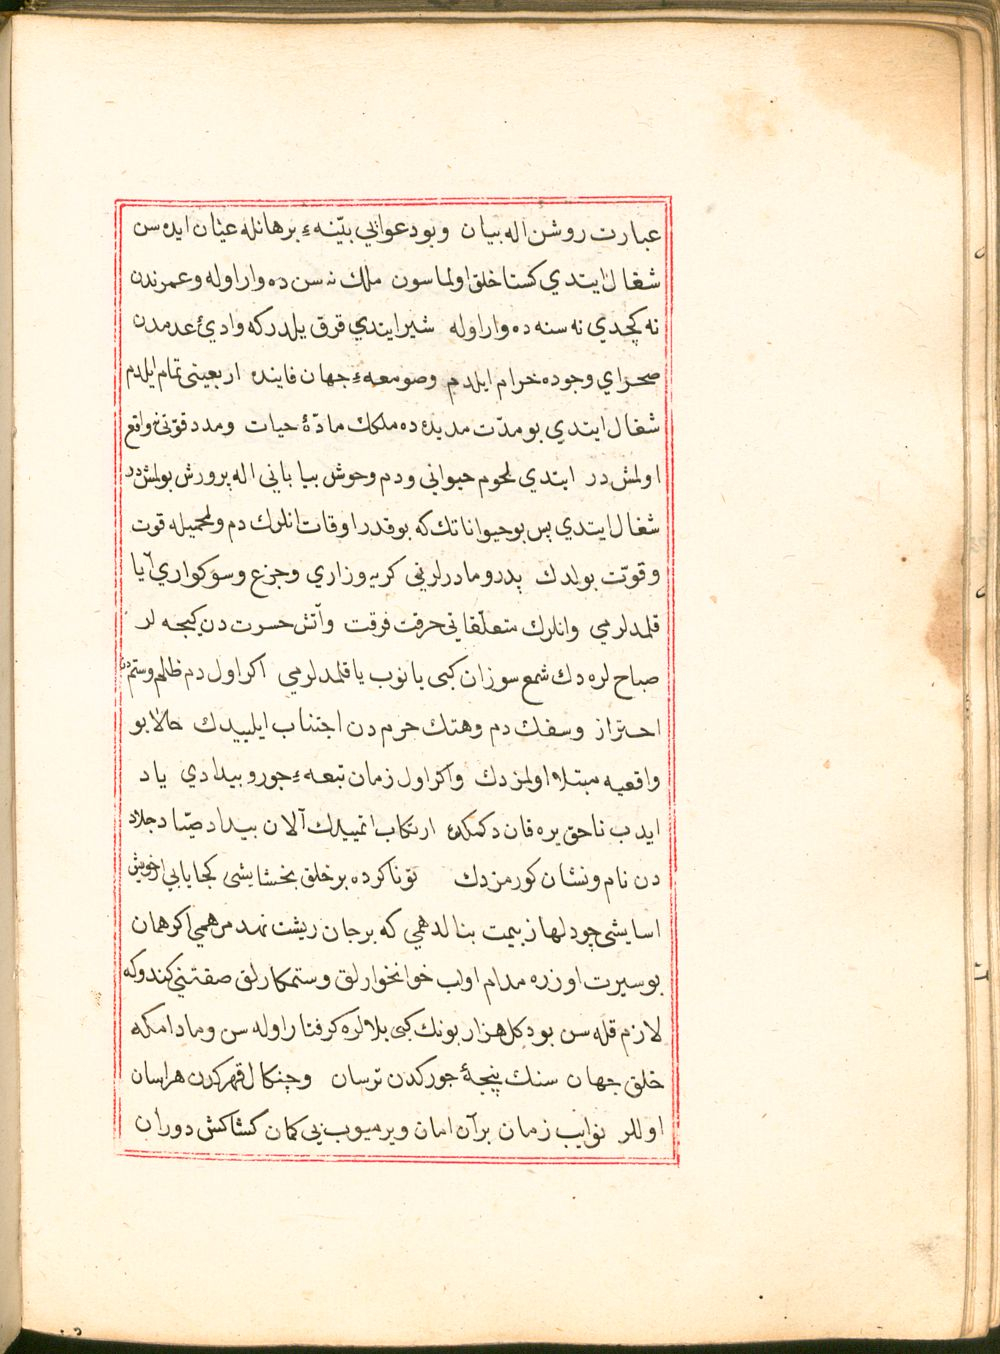 عبارت روشن اله بيان وبو دعوايي بيّنهء برهانله عيان ايده سن
شغال ايتدي كستاخلق اولماسون ملك نه سن ده وار اوله وعمرندن
نه كچدي نه سنه ده وار اوله شير ايتدي قرق يلدر كه واديء عدمدن
صحراي وجوده خرام ايلدم وصومعهء جهان فانيده اربعيني تمام ايلدم
شغال ايتدي بو مدّت مديده ده ملكك مادّهٔ حيات ومدد قوّتي نه واقع
اولمش در ايتدي لحوم حيواني ودم وحوش بياباني اله پرورش بولمش در
شغال ايتدي پس بو حيواناتك كه بو قدر اوقات انلرك دم ولحميله قوت
وقوّت بولدك پدر ومادرلرني كريه وزاري وجزع وسوكواري آيا
قلمدلر مي وانلرك متعلّقاتي حرقت فرقت وآتش حسرت دن كيجه لر
صباح لره دك شمع سوزان كبي يانوب ياقلمدلر مي اكر اول دم ظلم وستم دن
احتراز وسفك دم وهتك حرم دن اجتناب ايلييدك حالا بو
واقعيه مبتلا اولمزدك واكر اول زمان تبعهء جور وبيدادي ياد
ايدب ناحق يره قان دكمكده ارتكاب اتمييدك آلان بيداد صيّاد جلاد
دن نام ونشان كورمزدك تو ناكرده بر خلق بخشايشي كجا يابي از خويش
اسايشي چو دلها ز بيمت بنالد همي كه بر جان ريشت نهد مرهمي اكر همان
بو سيرت اوزره مدام اولب خوانخوارلق وستمكارلق صفتني كندوكه
لازم قله سن بو دكل هزار بونك كبي بلالره كرفتار اوله سن ومادامكه
خلق جهان سنك پنجهٔ جوركدن ترسان وچنكال قهركدن هراسان
اوللر نوايب زمان بر آن امان ويرميوب بي كمان كشاكش دوران